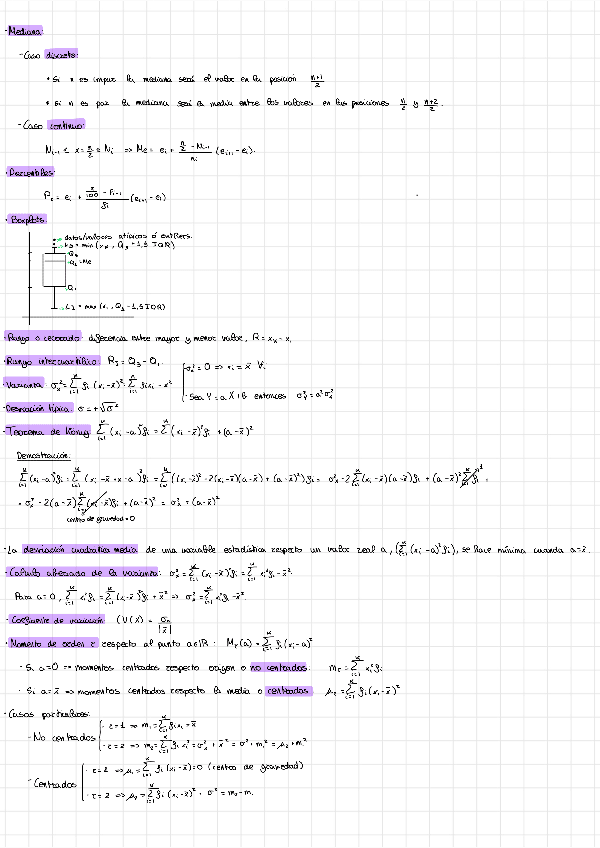 · Mediana:
- Caso discreto:
• Si n es impar la mediana será el valor en la posición (n+1)/2
• Si n es par la mediana será la media entre los valores en las posiciones n/2 y (n+2)/2.
- Caso continuo:
Nᵢ₋₁ ≤ x = n/2 ≤ Nᵢ ⇒ Me = eᵢ + (n/2 - Nᵢ₋₁)/nᵢ (eᵢ₊₁ - eᵢ).
· Percentiles:
eᵢ + (eᵢ₊₁ - eᵢ)
· Boxplots:
datos/valores atípicos o outliers.
Q₃ + 1,5 IQR)
Q₃
Q₂ = Me
Q₁
Q₁ - 1,5 IQR)
· Rango o recorrido: diferencia entre mayor y menor valor,
· Rango intercuartílico: Q₃ - Q₁.
σₓ² = 0 ⇒ xᵢ = x̄ ∀i
· Varianza:
Sea Y = aX + B entonces σᵧ² = a²σₓ²
· Desviación típica: σ = +√σ²
· Teorema de König: Σ (xᵢ - a)² fᵢ = Σ (xᵢ - x̄)² fᵢ + (a - x̄)²
Demostración:
Σ (xᵢ - a)² fᵢ = Σ (xᵢ - x̄ + x̄ - a)² fᵢ = Σ ((xᵢ - x̄)² - 2(xᵢ - x̄)(a - x̄) + (a - x̄)²) fᵢ = σₓ² - 2 Σ (xᵢ - x̄)(a - x̄) fᵢ + (a - x̄)² Σ fᵢ =
= σₓ² - 2(a - x̄) Σ (xᵢ - x̄) fᵢ + (a - x̄)² = σₓ² + (a - x̄)²
centro de gravedad = 0
· La desviación cuadrática media de una variable estadística respecto un valor real a, (Σ (xᵢ - a)² fᵢ), se hace mínima cuando a = x̄.
· Cálculo abreviado de la varianza: σₓ² = Σ (xᵢ - x̄)² fᵢ = Σ xᵢ² fᵢ - x̄².
Para a = 0, Σ xᵢ² fᵢ = Σ (xᵢ - x̄)² fᵢ + x̄² ⇒ σₓ² = Σ xᵢ² fᵢ - x̄².
· Coeficiente de variación: CV(X) = σₓ/|x̄|
· Momento de orden r respecto al punto a∈ℝ:
- Si a = 0 ⇒ momentos centrados respecto origen o no centrados:
- Si a = x̄ ⇒ momentos centrados respecto la media o centrados
· Casos particulares:
- r = 1 ⇒ m₁ = Σ fᵢ xᵢ = x̄
- No centrados
- r = 2 ⇒ m₂ = Σ fᵢ xᵢ² = σₓ² + x̄² = σ² + m₁² = μ₂ + m₁²
Σ fᵢ (xᵢ - x̄) = 0 (centro de gravedad)
- Centrados
- r = 2 ⇒ μ₂ = Σ fᵢ (xᵢ - x̄)²